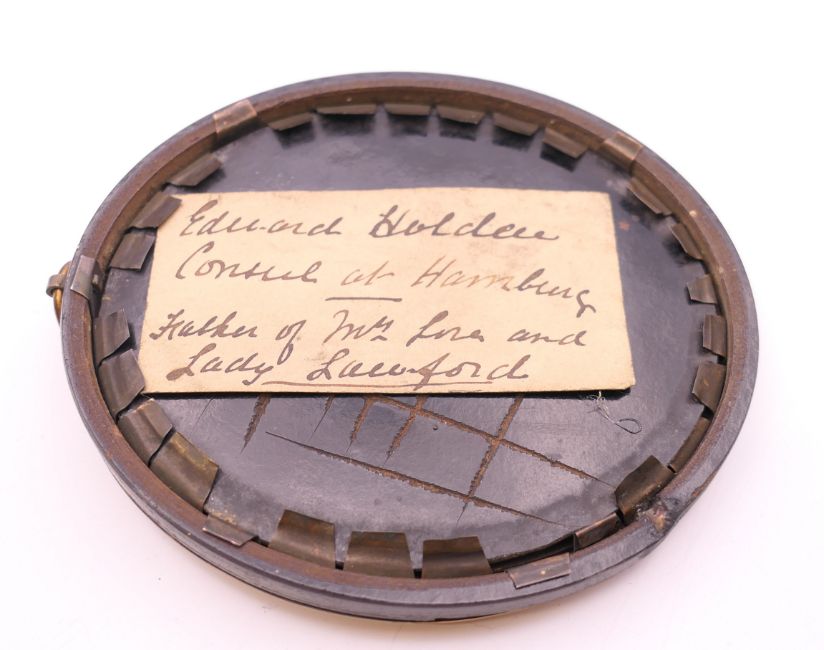 Edward Holden
Consul at Hamburg
Father of Mrs and
Lady Lawford